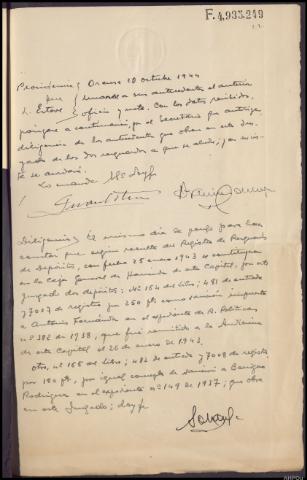 F.4.935.249
Providencia Orense 10 octubre 1944
Juez
S. Esteve
Únanse a sus antecedentes el anterior
oficio y nota. Con los datos recibidos,
póngase a continuación por el Secretario que autoriza
diligencia de los antecedentes que obran en este Juz-
gado de los dos resguardos a que se alude, y
se acordará.
Lo manda SSª. Doy fe
Diligencia. El mismo día se pone para hacer
constar que según resulta del Registro de Resguardos
de Depósitos, con fecha 25 enero 1943 se constituyeron
en la Caja General de Hacienda de esta Capital, por este
Juzgado dos depósitos: nº 154 del libro; 481 de entrada
y 7007 de registro por 250 pts como sanción impuesta
a Antonio Fernández en el expediente de R. Políticas
nº 382 de 1938, que fué remitido a la Audiencia
de esta Capital el 26 de enero de 1943.
Otro, nº 155 del libro; 482 de entrada y 7008 de registro
por 150 pts, por igual concepto de sanción a Benigno
Rodríguez en el expediente nº 149 de 1937; que obra
en este Juzgado; doy fe